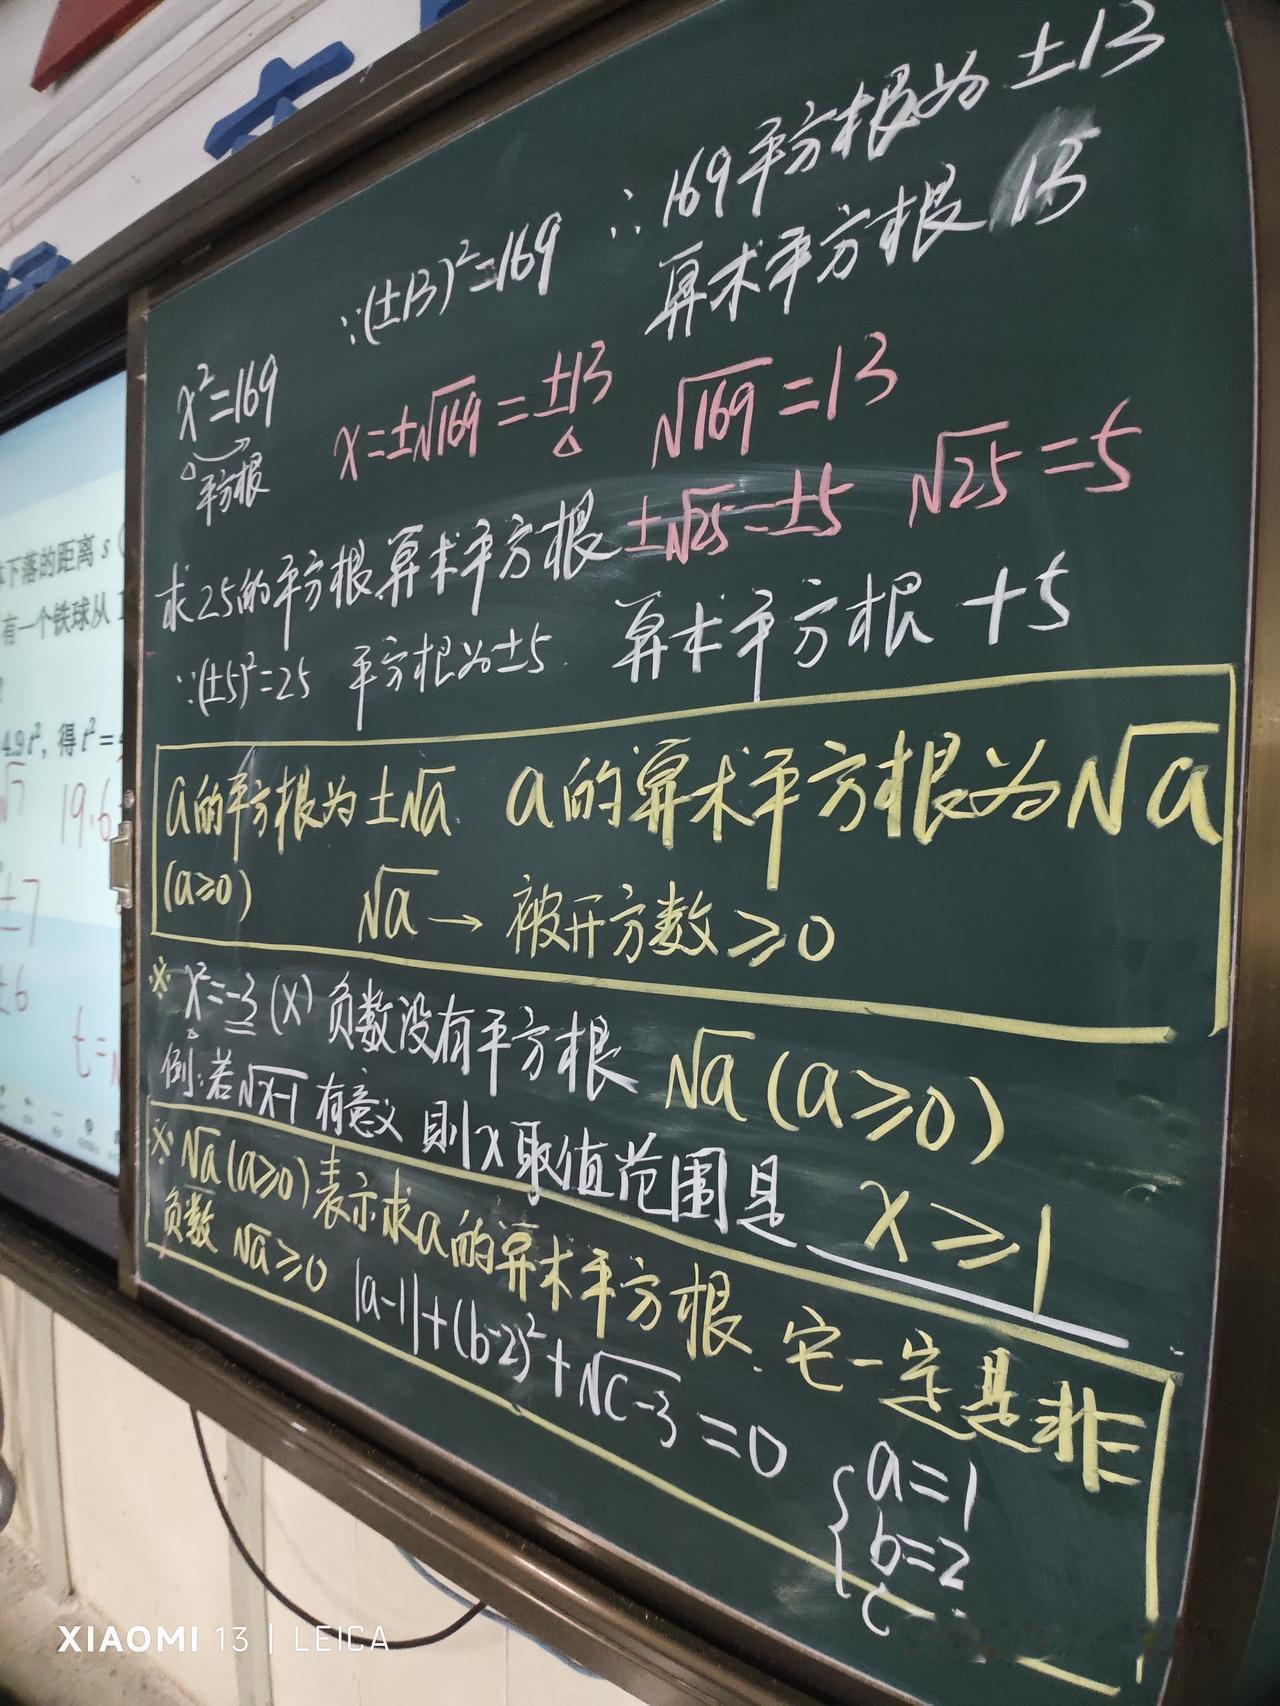 ∵(±13)²=169 ∴169平方根为±13
算术平方根13
x²=169
平方根
x=±√169=±13 √169=13
求25的平方根算术平方根 ±√25=±5 √25=5
∵(±5)²=25 平方根为±5 算术平方根 +5
a的平方根为±√a a的算术平方根为√a
(a≥0) √a → 被开方数≥0
※ x²=-3 (×) 负数没有平方根 √a(a≥0)
例:若√x-1 有意义 则x取值范围是 x≥1
※ √a(a≥0)表示求a的算术平方根.它一定是非
负数 √a≥0 |a-1|+(b-2)²+√c-3=0
{a=1
b=2
c
下落的距离 s
有一个铁球从
4.9t², 得 t²=
19.6
±7
±6
t=
XIAOMI 13 | LEICA